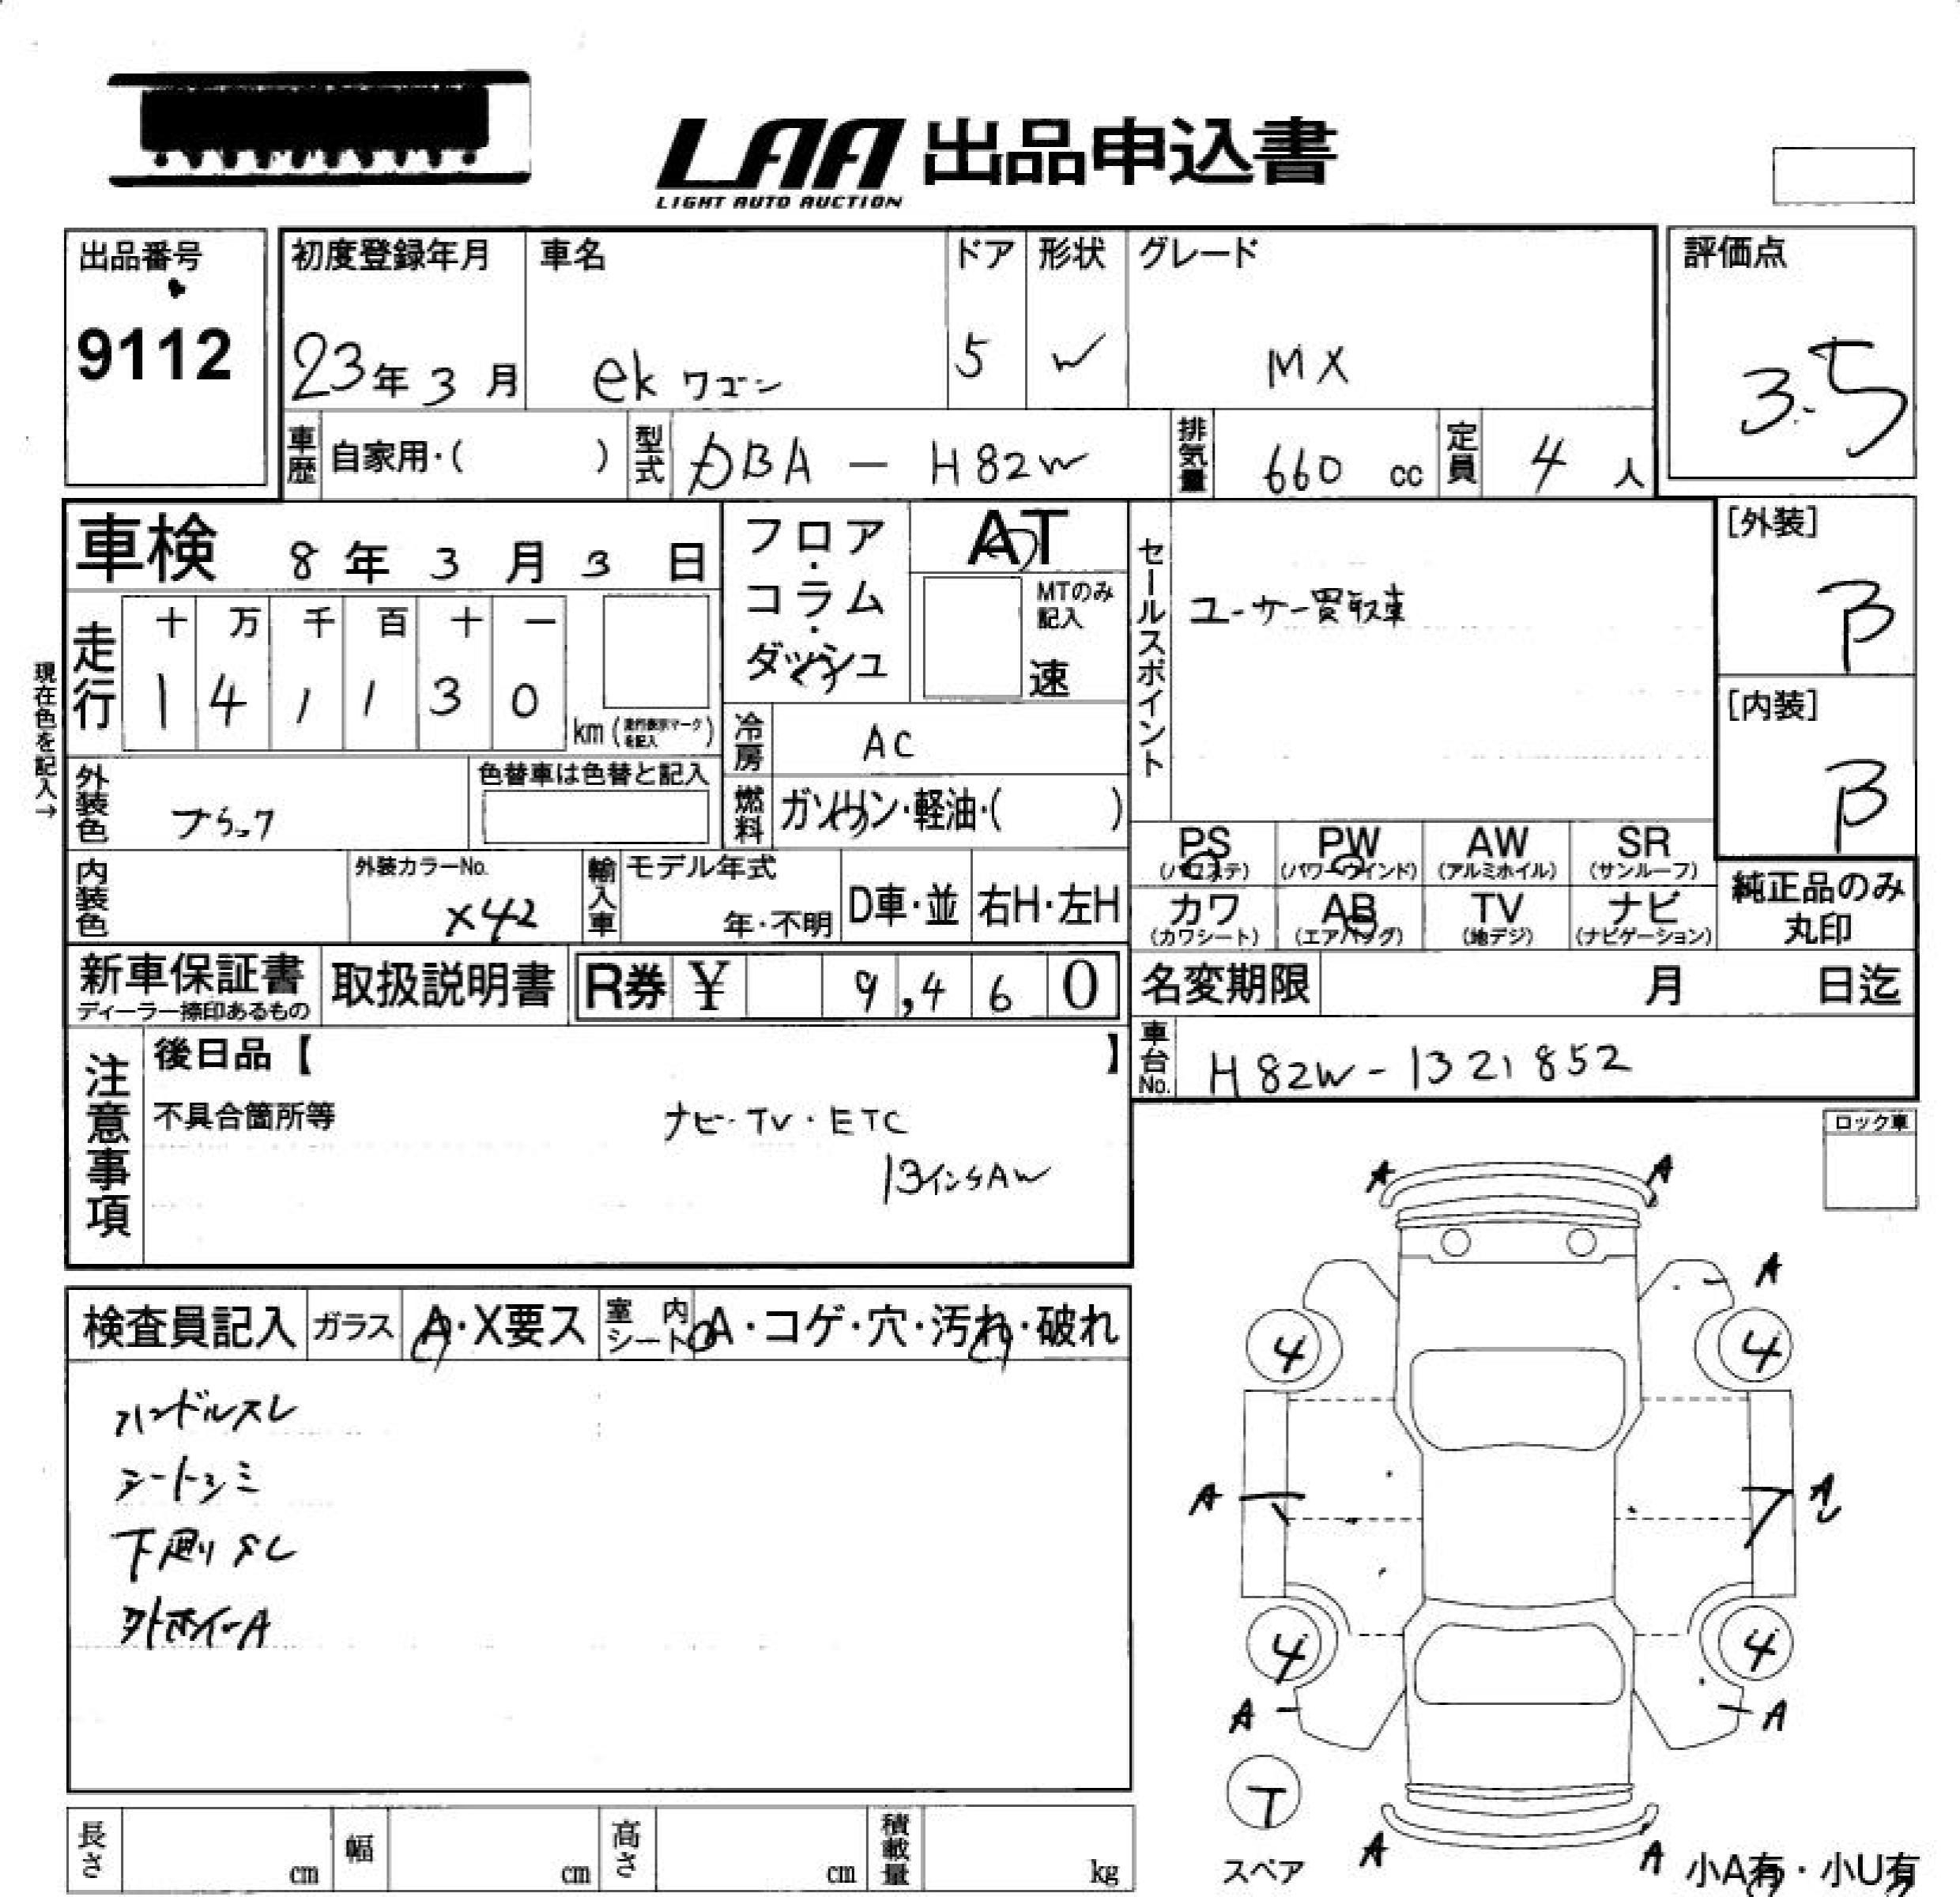 LAA 出品申込書
LIGHT AUTO AUCTION
出品番号
9112
初度登録年月
23年3月
車名
ek ワゴン
ドア
5
形状
W
グレード
MX
評価点
3.5
車歴 自家用・( )
型式 DBA - H82W
排気量 660 cc
定員 4 人
車検 8年3月3日
フロア・コラム・ダッシュ
AT
MTのみ記入
速
セールスポイント
ユーザー買取車
[外装]
B
[内装]
B
現在色を記入→
走行
十 万 千 百 十 一
1 4 1 1 3 0
km(走行表示マークを記入)
冷房 AC
燃料 ガソリン・軽油・( )
外装色 ブラック
色替車は色替と記入
内装色
外装カラーNo.
X42
輸入車
モデル年式
年・不明
D車・並
右H・左H
PS (パワステ)
PW (パワーウインド)
AW (アルミホイル)
SR (サンルーフ)
カワ (カワシート)
AB (エアバッグ)
TV (地デジ)
ナビ (ナビゲーション)
純正品のみ丸印
新車保証書
ディーラー捺印あるもの
取扱説明書
R券 ¥ 9,460
名変期限 月 日迄
車台No. H82W-1321852
注意事項
後日品【 】
不具合箇所等
ナビ・TV・ETC
13インチAW
ロック車
検査員記入
ガラス A・X要ス
室内シート A・コゲ・穴・汚れ・破れ
ハンドルスレ
シートシミ
下廻りサビ
外ホイールA
A A
A
4 4
A A
4 4
A A
T
スペア
A A
小A有・小U有
長さ cm
幅 cm
高さ cm
積載量 kg